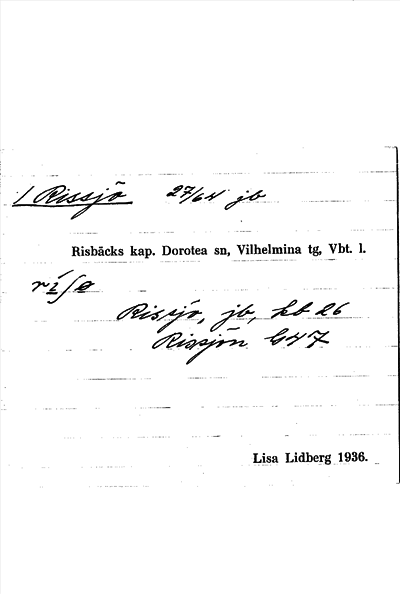 1 Rissjö 27/64 jb
Risbäcks kap. Dorotea sn, Vilhelmina tg, Vbt. l.
Rissjö, jb, kb 26
Rissjön G47
Lisa Lidberg 1936.